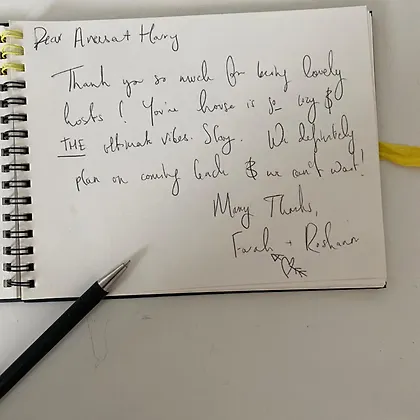 Dear Aneesa + Harry
Thank you so much for being lovely
hosts! You're house is so cosy &
THE ultimate vibes. Slay. We definitely
plan on coming back & we can't wait!
Many Thanks,
Farah + Roshann